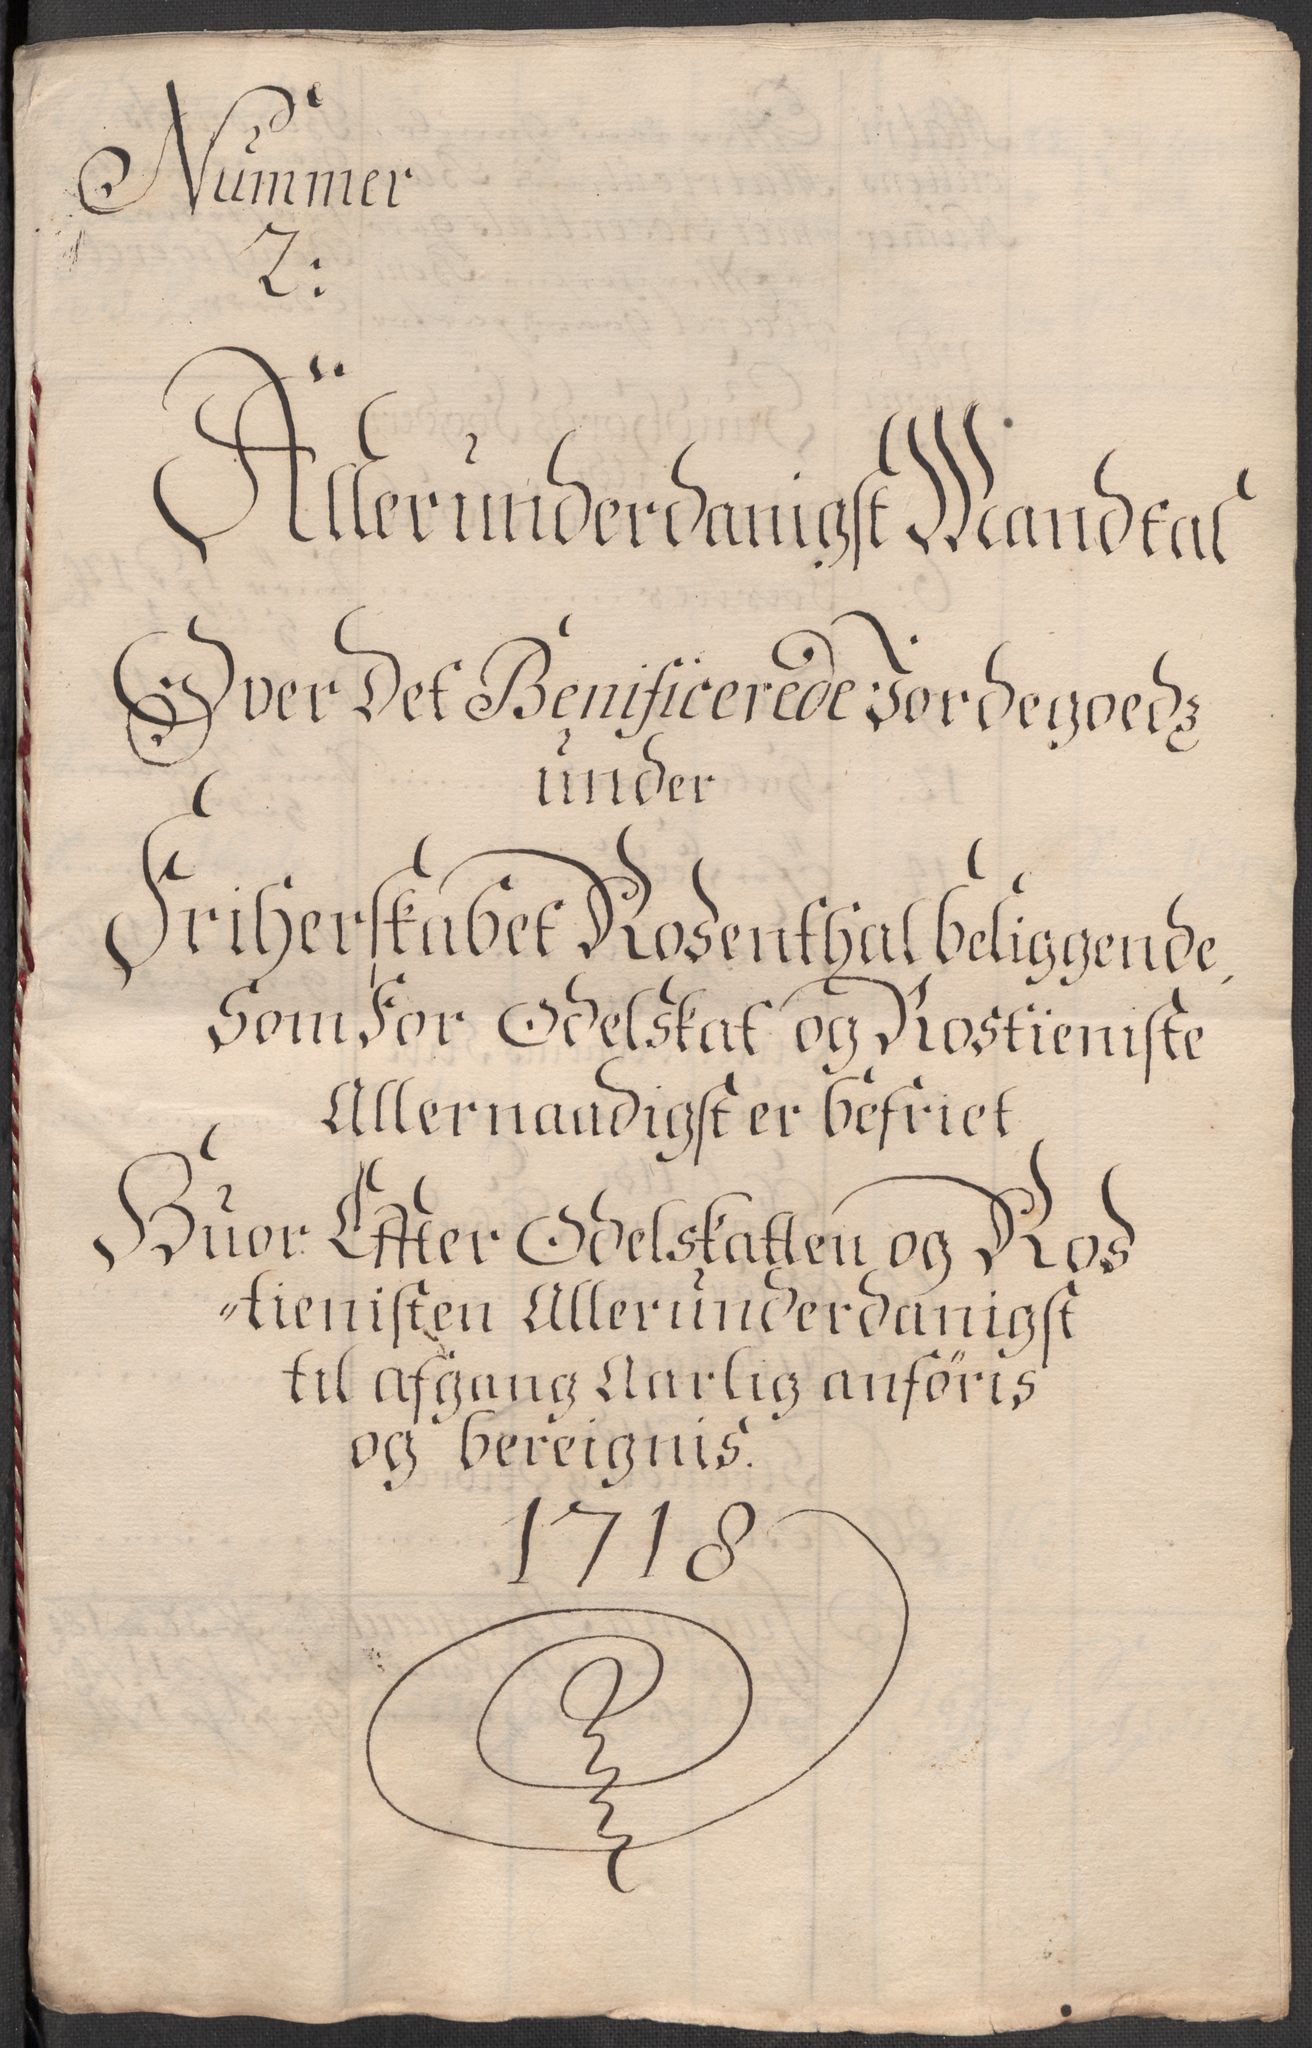 Nummer
2:
Allerunderdanigst Mandtal
Over Det Benificerede Jordegoedz
under
Friherskabet Rosenthal beliggende,
Som for Odelskat og Rostieniste
Allernaadigst er befriet
Huor Effter Odelskatten og Ros
-tienisten Allerunderdanigst
til afgang Aarlig anföris
og bereignis.
1718